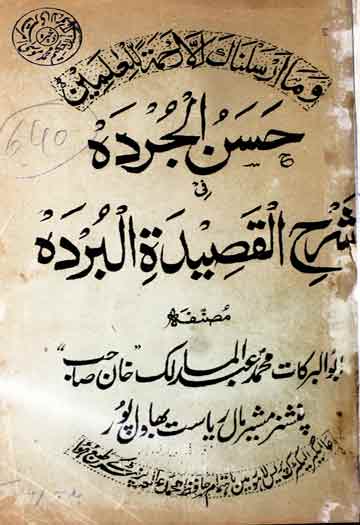 وما ارسلناك الا رحمة للعلمين
640
حسن الجرده
فی
شرح القصيدة البرده
مصنفہ
ابوالبرکات محمد عبد المالک "خان صاحب"
پنشنر مشیر مال ریاست بہاولپور